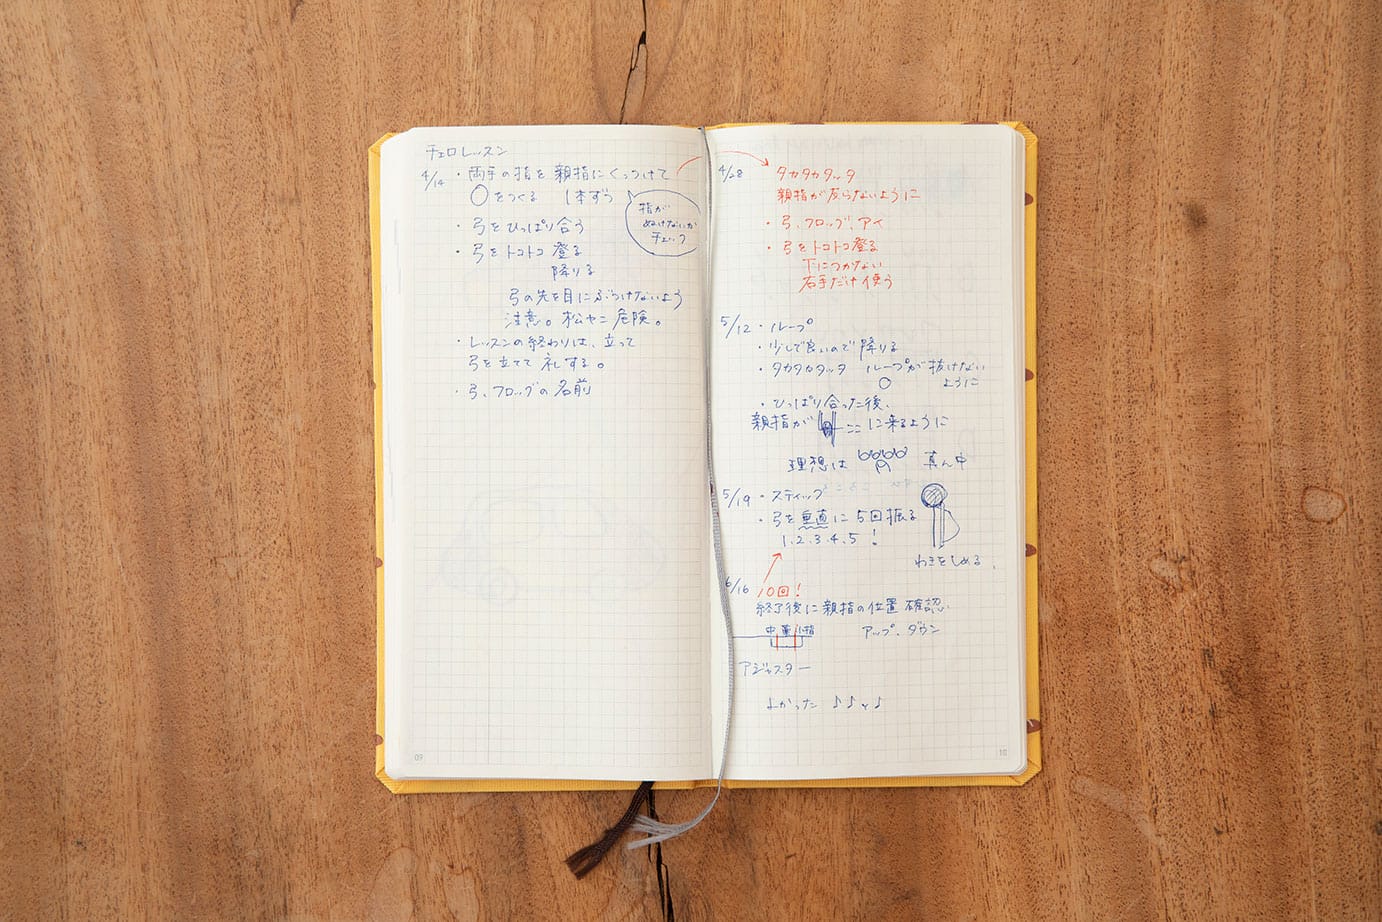 チェロレッスン
4/14 ・両手の指を親指にくっつけて
〇をつくる 1本ずつ
指が
ぬけないか
チェック
・弓をひっぱり合う
・弓をトコトコ登る
降りる
弓の先を目にぶつけないよう
注意。松ヤニ危険。
・レッスンの終わりは、立って
弓を立てて礼する。
・弓、フロッグの名前
09
4/28 タカタカタッタ
親指が反らないように
・弓、フロッグ、アイ
・弓をトコトコ登る
下につかない
右手だけ使う
5/12 ・ループ
・少しで良いので降りる
・タカタカタッタ ループが抜けない
〇 ように
・ひっぱり合った後、
親指が ココに来るように
理想は 真ん中
5/19 ・スティック
・弓を垂直に5回振る
1.2.3.4.5!
わきをしめる、
6/16 10回!
終了後に親指の位置確認
中 薬 小指 アップ、ダウン
アジャスター
よかった ♪♪と♪
10